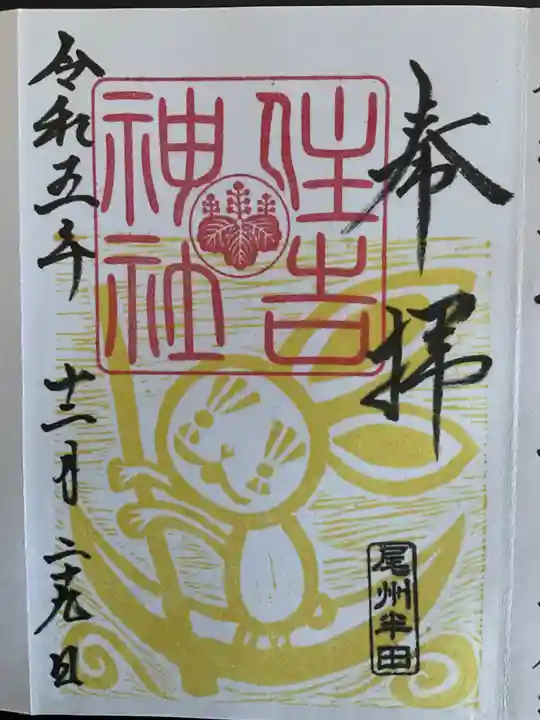 奉拝
住吉
神社
尾州半田
令和五年 十二月 二十九日